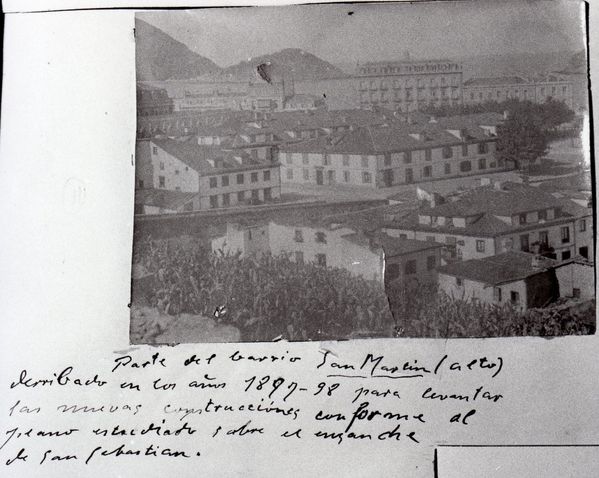 Parte del barrio San Martín (alto)
derribado en los años 1897-98 para levantar
las nuevas construcciones conforme al
plano estudiado sobre el ensanche
de San Sebastian.